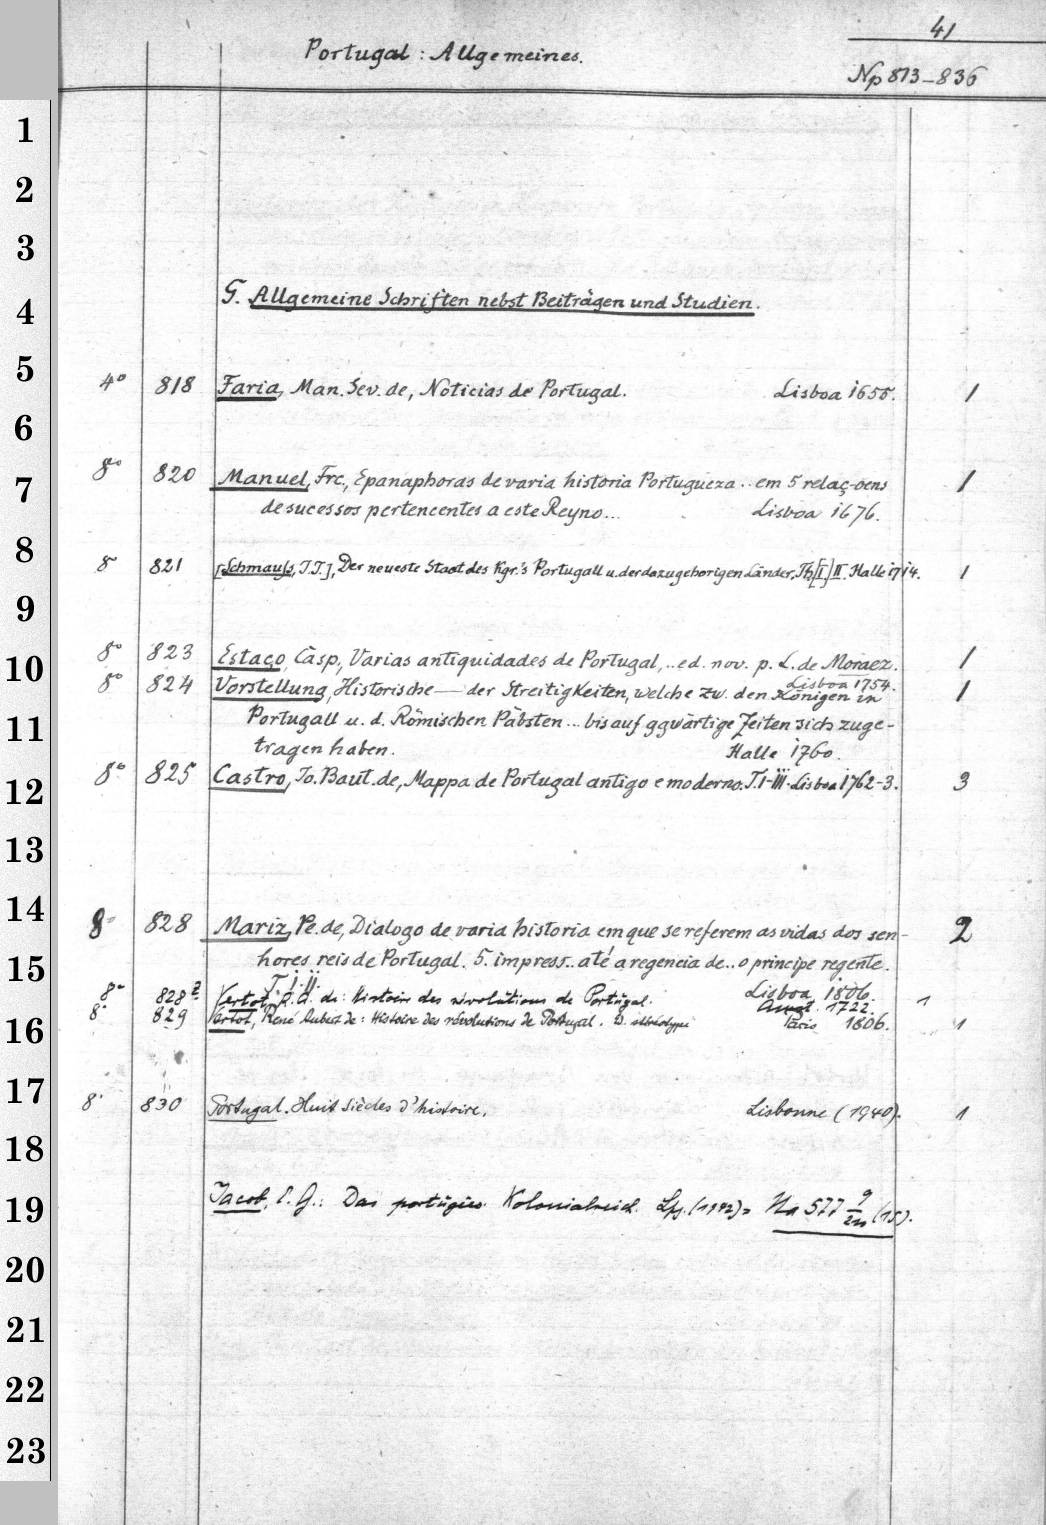 41
Portugal : Allgemeines.
Np 813-836
1
2
3
G. Allgemeine Schriften nebst Beiträgen und Studien.
4
5
4° 818 Faria, Man. Sev. de, Noticias de Portugal. Lisboa 1655. 1
6
8° 820 Manuel, Frc., Epanaphoras de varia historia Portugueza .. em 5 relaç-oens 1
7
de sucessos pertencentes a este Reyno... Lisboa 1676.
8
8° 821 [Schmauß, J.J.], Der neueste Staat des Kgr.'s Portugall u. der dazugehörigen Länder, Th. [I.] II. Halle 1714. 1
9
8° 823 Estaço, Casp., Varias antiquidades de Portugal, .. ed. nov. p. L. de Moraez. 1
10
Lisboa 1754.
8° 824 Vorstellung, Historische — der Streitigkeiten, welche zw. den Königen in 1
Portugall u. d. Römischen Päbsten ... bis auf ggwärtige Zeiten sich zuge-
11
tragen haben. Halle 1760.
8° 825 Castro, Jo. Baut. de, Mappa de Portugal antigo e moderno. T. I-III. Lisboa 1762-3. 3
12
13
14
8° 828 Mariz, Pe. de, Dialogo de varia historia em que se referem as vidas dos sen- 2
hores reis de Portugal. 5. impress.. até a regencia de .. o principe regente.
15
T. I. II. Lisboa 1806.
8° 828 2 Vertot, R. A. de: Histoire des révolutions de Portugal. 1722. 1
8° 829 Vertot, René Aubert de: Histoire des révolutions de Portugal. Paris 1806. 1
16
17
8° 830 Portugal. Huit siècles d'histoire. Lisbonne (1940). 1
18
Jacob, E. G.: Das portugies. Kolonialreich. Lpz. (1942) = Na 577 (15).
19
20
21
22
23